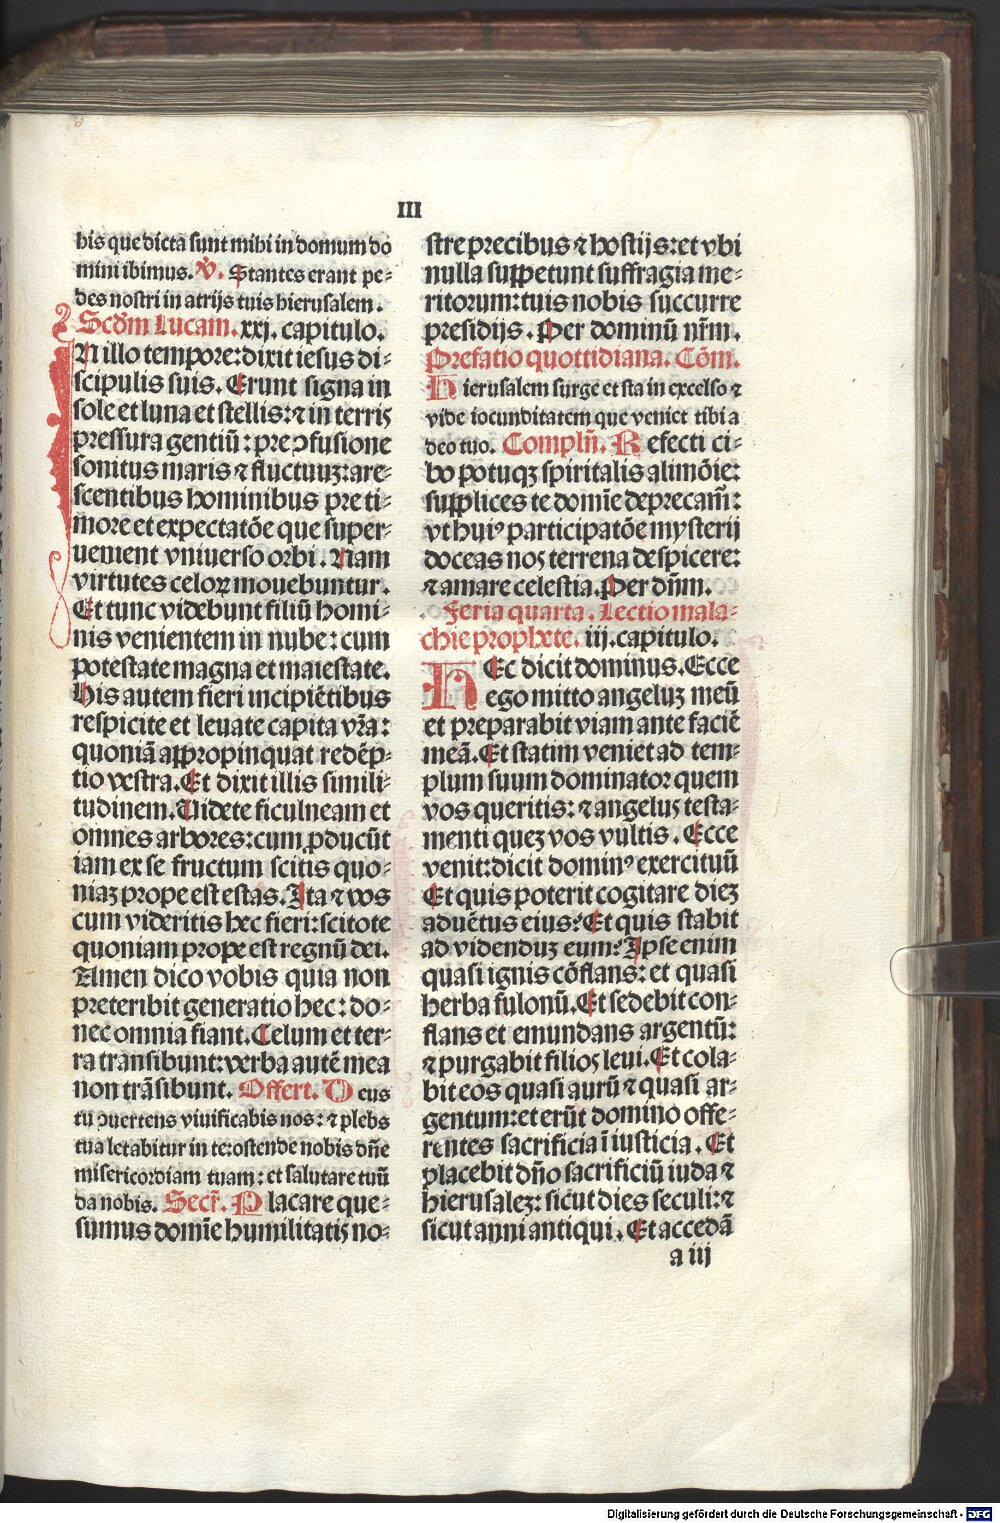 III
his que dicta sunt mihi in domum do
mini ibimus. V̉. Stantes erant pe⸗
des nostri in atrijs tuis hierusalem.
Scd̄m Lucam. xxj. capitulo.
IN illo tempore: dixit iesus di⸗
scipulis suis. Erunt signa in
sole et luna et stellis: ⁊ in terris
pressura gentiū: pre ↄfusione
sonitus maris ⁊ fluctuuʒ: are⸗
scentibus hominibus pre ti⸗
more et expectatōe que super⸗
uenient vniuerso orbi. Nam
virtutes celoꝝ mouebuntur.
Et tunc videbunt filiū homi⸗
nis venientem in nube: cum
potestate magna et maiestate.
His autem fieri incipiētibus
respicite et leuate capita vr̄a:
quoniā appropinquat redēp⸗
tio vestra. Et dixit illis simili⸗
tudinem. Videte ficulneam et
omnes arbores: cum ꝓducūt
iam ex se fructum scitis quo⸗
niaʒ prope est estas. Ita ⁊ vos
cum videritis hec fieri: scitote
quoniam prope est regnū dei.
Amen dico vobis quia non
preteribit generatio hec: do⸗
nec omnia fiant. Celum et ter⸗
ra transibunt: verba autē mea
non trāsibunt. Offert. Deus
tu ↄuertens viuificabis nos: ⁊ plebs
tua letabitur in te: ostende nobis dn̄e
misericordiam tuam: et salutare tuū
da nobis. Secr̄. Placare que⸗
sumus domīe humilitatis no⸗
stre precibus ⁊ hostijs: et vbi
nulla suppetunt suffragia me⸗
ritorum: tuis nobis succurre
presidijs. Per dominū nr̄m.
Prefatio quottidiana. Cōm.
Hierusalem surge et sta in excelso ⁊
vide iocunditatem que veniet tibi a
deo tuo. Compln̄. Refecti ci⸗
bo potuqꝫ spiritalis alimōie:
supplices te domīe deprecam̄:
vt huiꝰ participatōe mysterij
doceas nos terrena despicere:
⁊ amare celestia. Per dn̄m.
Feria quarta. Lectio mala⸗
chie prophete. iij. capitulo.
HEc dicit dominus. Ecce
ego mitto angeluʒ meū
et preparabit viam ante faciē
meā. Et statim veniet ad tem⸗
plum suum dominator quem
vos queritis: ⁊ angelus testa⸗
menti queʒ vos vultis. Ecce
venit: dicit dominꝰ exercituū
Et quis poterit cogitare dieʒ
aduētus eius? Et quis stabit
ad videnduʒ eum? Ipse enim
quasi ignis cōflans: et quasi
herba fulonū. Et sedebit con⸗
flans et emundans argentū:
⁊ purgabit filios leui. Et cola⸗
bit eos quasi aurū ⁊ quasi ar⸗
gentum: et erūt domino offe⸗
rentes sacrificia ī iusticia. Et
placebit dn̄o sacrificiū iuda ⁊
hierusaleʒ: sicut dies seculi: ⁊
sicut anni antiqui. Et accedā
a iij
Digitalisierung gefördert durch die Deutsche Forschungsgemeinschaft - DFG